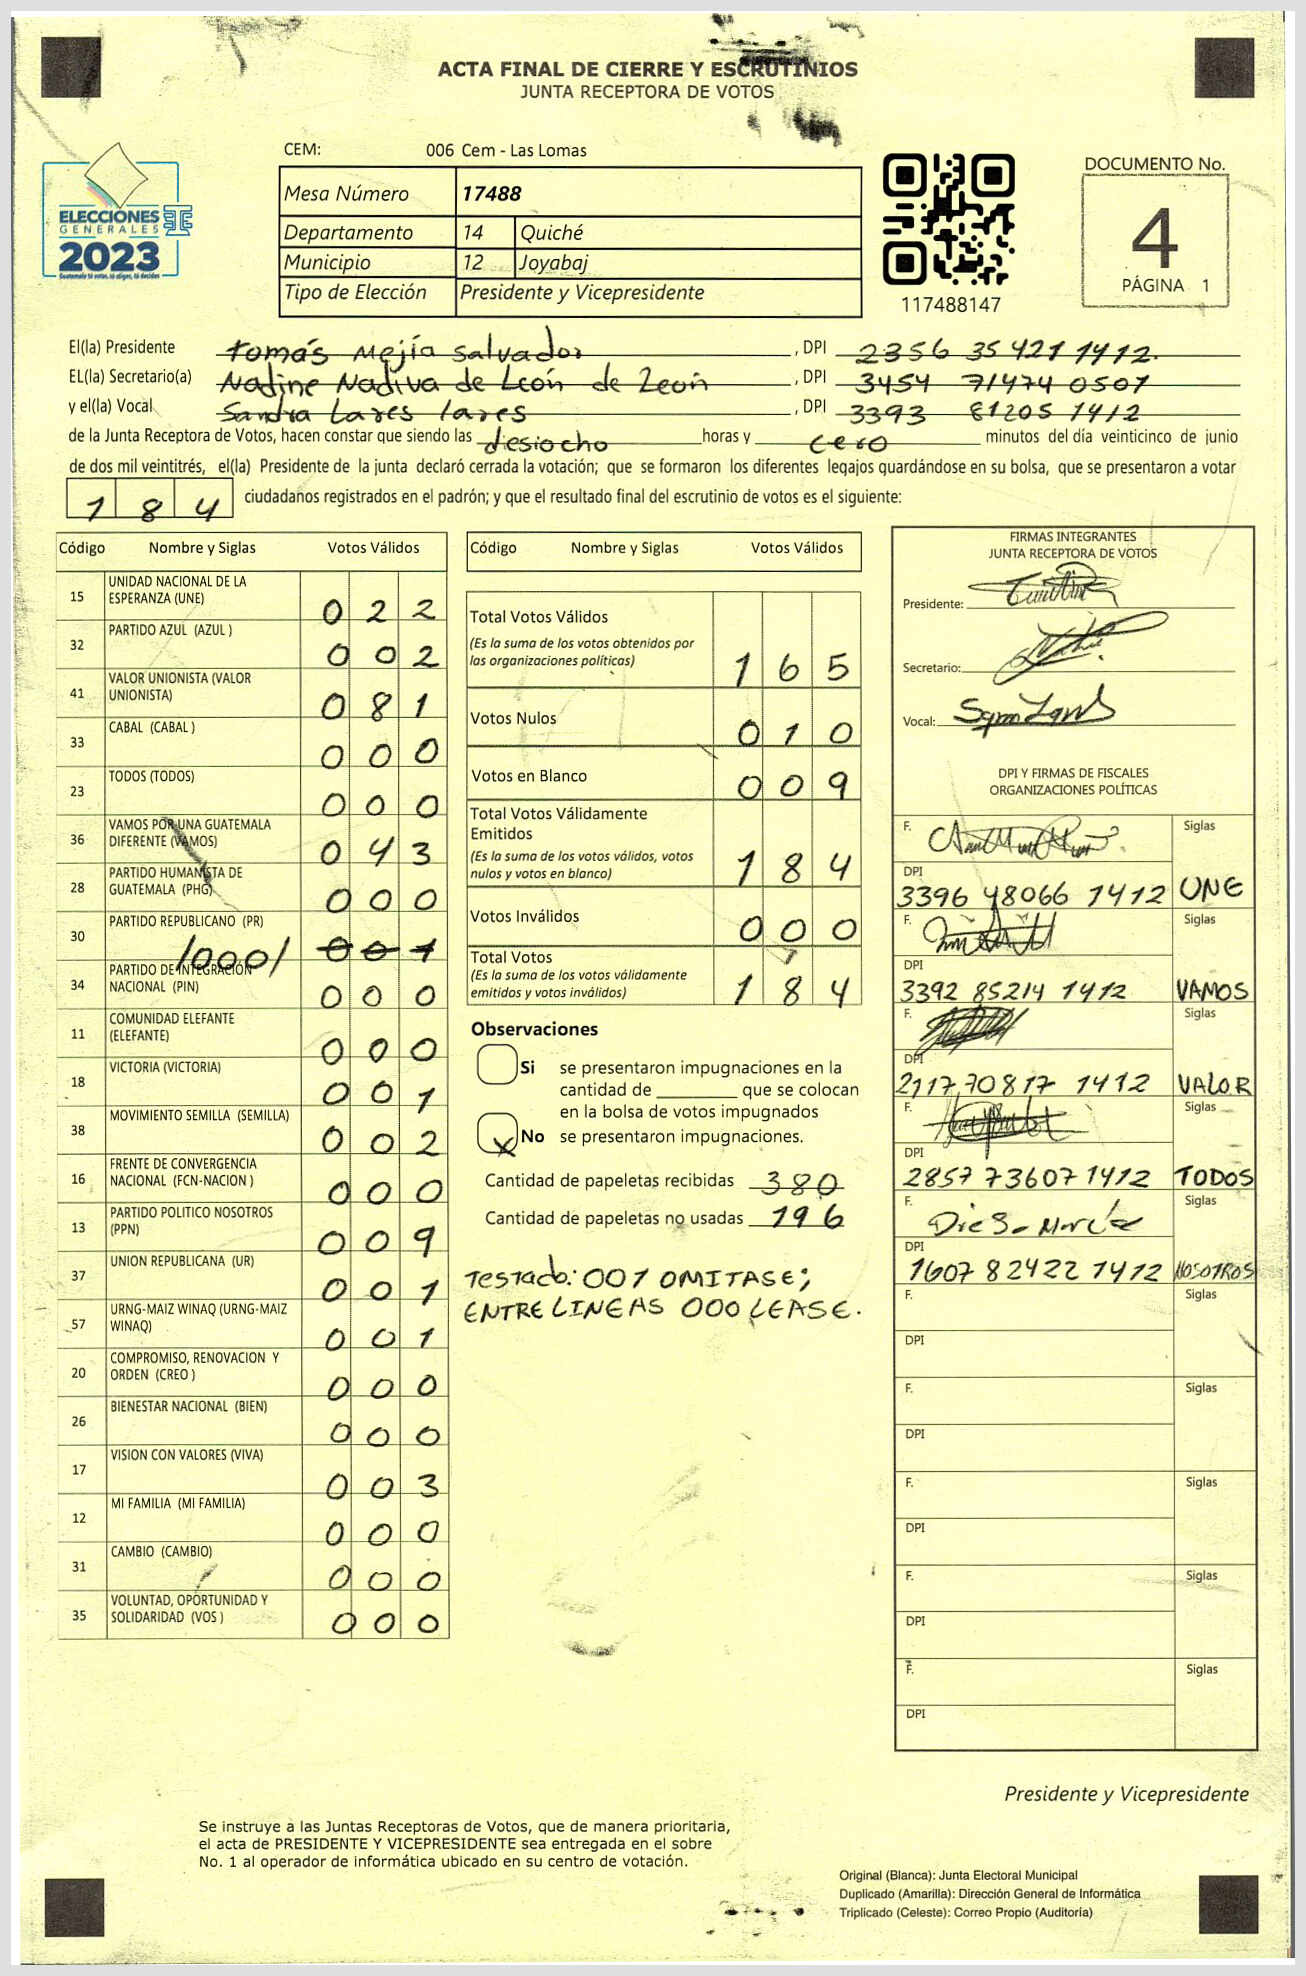 ACTA FINAL DE CIERRE Y ESCRUTINIOS
JUNTA RECEPTORA DE VOTOS
CEM: 006 Cem - Las Lomas
Mesa Número 17488
Departamento 14 Quiché
Municipio 12 Joyabaj
Tipo de Elección Presidente y Vicepresidente
ELECCIONES
GENERALES
2023
Guatemala tú votas, tú eliges, tú decides
117488147
DOCUMENTO No.
4
PÁGINA 1
El(la) Presidente Tomás Mejía Salvador, DPI 2356 35421 1412.
EL(la) Secretario(a) Nadine Nadiva de León de León, DPI 3454 71474 0501
y el(la) Vocal Sandra Lares lares, DPI 3393 81205 1412
de la Junta Receptora de Votos, hacen constar que siendo las desiocho horas y cero minutos del día veinticinco de junio
de dos mil veintitrés, el(la) Presidente de la junta declaró cerrada la votación; que se formaron los diferentes legajos quardándose en su bolsa, que se presentaron a votar
184 ciudadanos registrados en el padrón; y que el resultado final del escrutinio de votos es el siguiente:
Código Nombre y Siglas Votos Válidos
15 UNIDAD NACIONAL DE LA ESPERANZA (UNE) 022
32 PARTIDO AZUL (AZUL ) 002
41 VALOR UNIONISTA (VALOR UNIONISTA) 081
33 CABAL (CABAL ) 000
23 TODOS (TODOS) 000
36 VAMOS POR UNA GUATEMALA DIFERENTE (VAMOS) 043
28 PARTIDO HUMANISTA DE GUATEMALA (PHG) 000
30 PARTIDO REPUBLICANO (PR) /000/ 001
34 PARTIDO DE INTEGRACIÓN NACIONAL (PIN) 000
11 COMUNIDAD ELEFANTE (ELEFANTE) 000
18 VICTORIA (VICTORIA) 001
38 MOVIMIENTO SEMILLA (SEMILLA) 002
16 FRENTE DE CONVERGENCIA NACIONAL (FCN-NACION ) 000
13 PARTIDO POLITICO NOSOTROS (PPN) 009
37 UNION REPUBLICANA (UR) 001
57 URNG-MAIZ WINAQ (URNG-MAIZ WINAQ) 001
20 COMPROMISO, RENOVACION Y ORDEN (CREO ) 000
26 BIENESTAR NACIONAL (BIEN) 000
17 VISION CON VALORES (VIVA) 003
12 MI FAMILIA (MI FAMILIA) 000
31 CAMBIO (CAMBIO) 000
35 VOLUNTAD, OPORTUNIDAD Y SOLIDARIDAD (VOS ) 000
Código Nombre y Siglas Votos Válidos
Total Votos Válidos
(Es la suma de los votos obtenidos por
las organizaciones políticas) 165
Votos Nulos 010
Votos en Blanco 009
Total Votos Válidamente
Emitidos
(Es la suma de los votos válidos, votos
nulos y votos en blanco) 184
Votos Inválidos 000
Total Votos
(Es la suma de los votos válidamente
emitidos y votos inválidos) 184
Observaciones
Si se presentaron impugnaciones en la
cantidad de ________ que se colocan
en la bolsa de votos impugnados
X No se presentaron impugnaciones.
Cantidad de papeletas recibidas 380
Cantidad de papeletas no usadas 196
Testado: 001 OMITASE;
ENTRE LINEAS 000 LEASE.
FIRMAS INTEGRANTES
JUNTA RECEPTORA DE VOTOS
Presidente:
Secretario:
Vocal:
DPI Y FIRMAS DE FISCALES
ORGANIZACIONES POLÍTICAS
F. Siglas
DPI
3396 48066 1412 UNE
F. Siglas
DPI
3392 85214 1412 VAMOS
F. Siglas
DPI
2117 70817 1412 VALOR
F. Siglas
DPI
2857 73607 1412 TODOS
F. Siglas
DPI
1607 82422 1412 NOSOTROS
F. Siglas
DPI
F. Siglas
DPI
F. Siglas
DPI
F. Siglas
DPI
F. Siglas
DPI
Presidente y Vicepresidente
Se instruye a las Juntas Receptoras de Votos, que de manera prioritaria,
el acta de PRESIDENTE Y VICEPRESIDENTE sea entregada en el sobre
No. 1 al operador de informática ubicado en su centro de votación.
Original (Blanca): Junta Electoral Municipal
Duplicado (Amarilla): Dirección General de Informática
Triplicado (Celeste): Correo Propio (Auditoría)